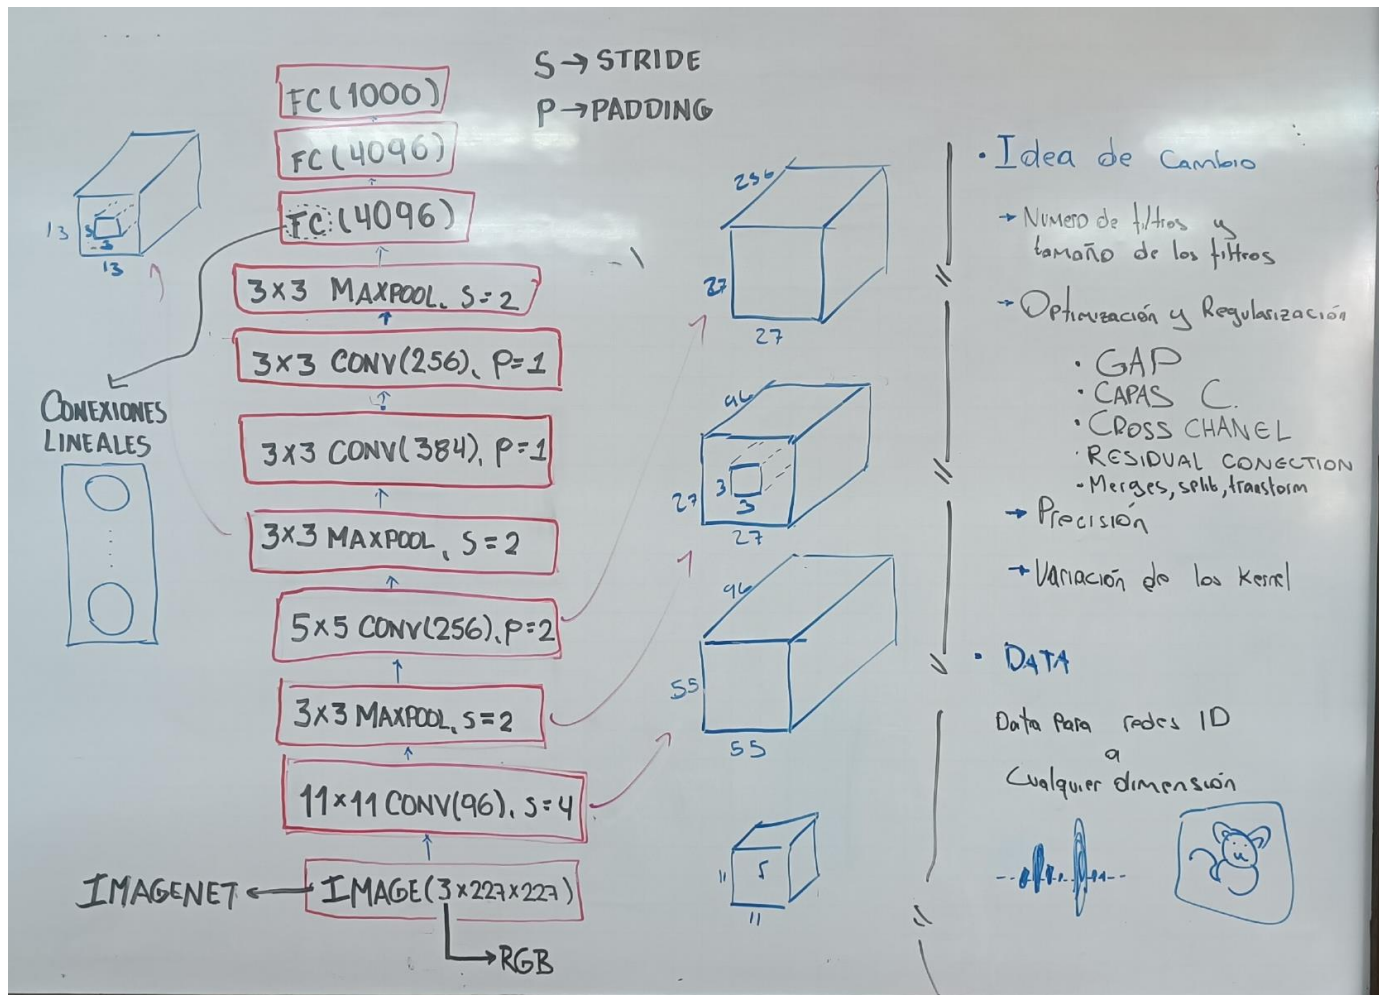 S → STRIDE
P → PADDING
FC(1000)
FC(4096)
FC(4096)
3×3 MAXPOOL, S=2
3×3 CONV(256), P=1
3×3 CONV(384), P=1
3×3 MAXPOOL, S=2
5×5 CONV(256), P=2
3×3 MAXPOOL, S=2
11×11 CONV(96), S=4
IMAGE(3×227×227)
IMAGENET
RGB
13
3
13
CONEXIONES
LINEALES
256
27
27
96
27
3
3
27
96
55
55
11
11
• Idea de Cambio
→ Numero de filtros y
tamaño de los filtros
→ Optimización y Regularización
• GAP
• CAPAS C.
• CROSS CHANEL
• RESIDUAL CONECTION
• Merges, split, transform
→ Precisión
→ Variación de los Kernel
• DATA
Data Para redes 1D
a
Cualquier dimensión